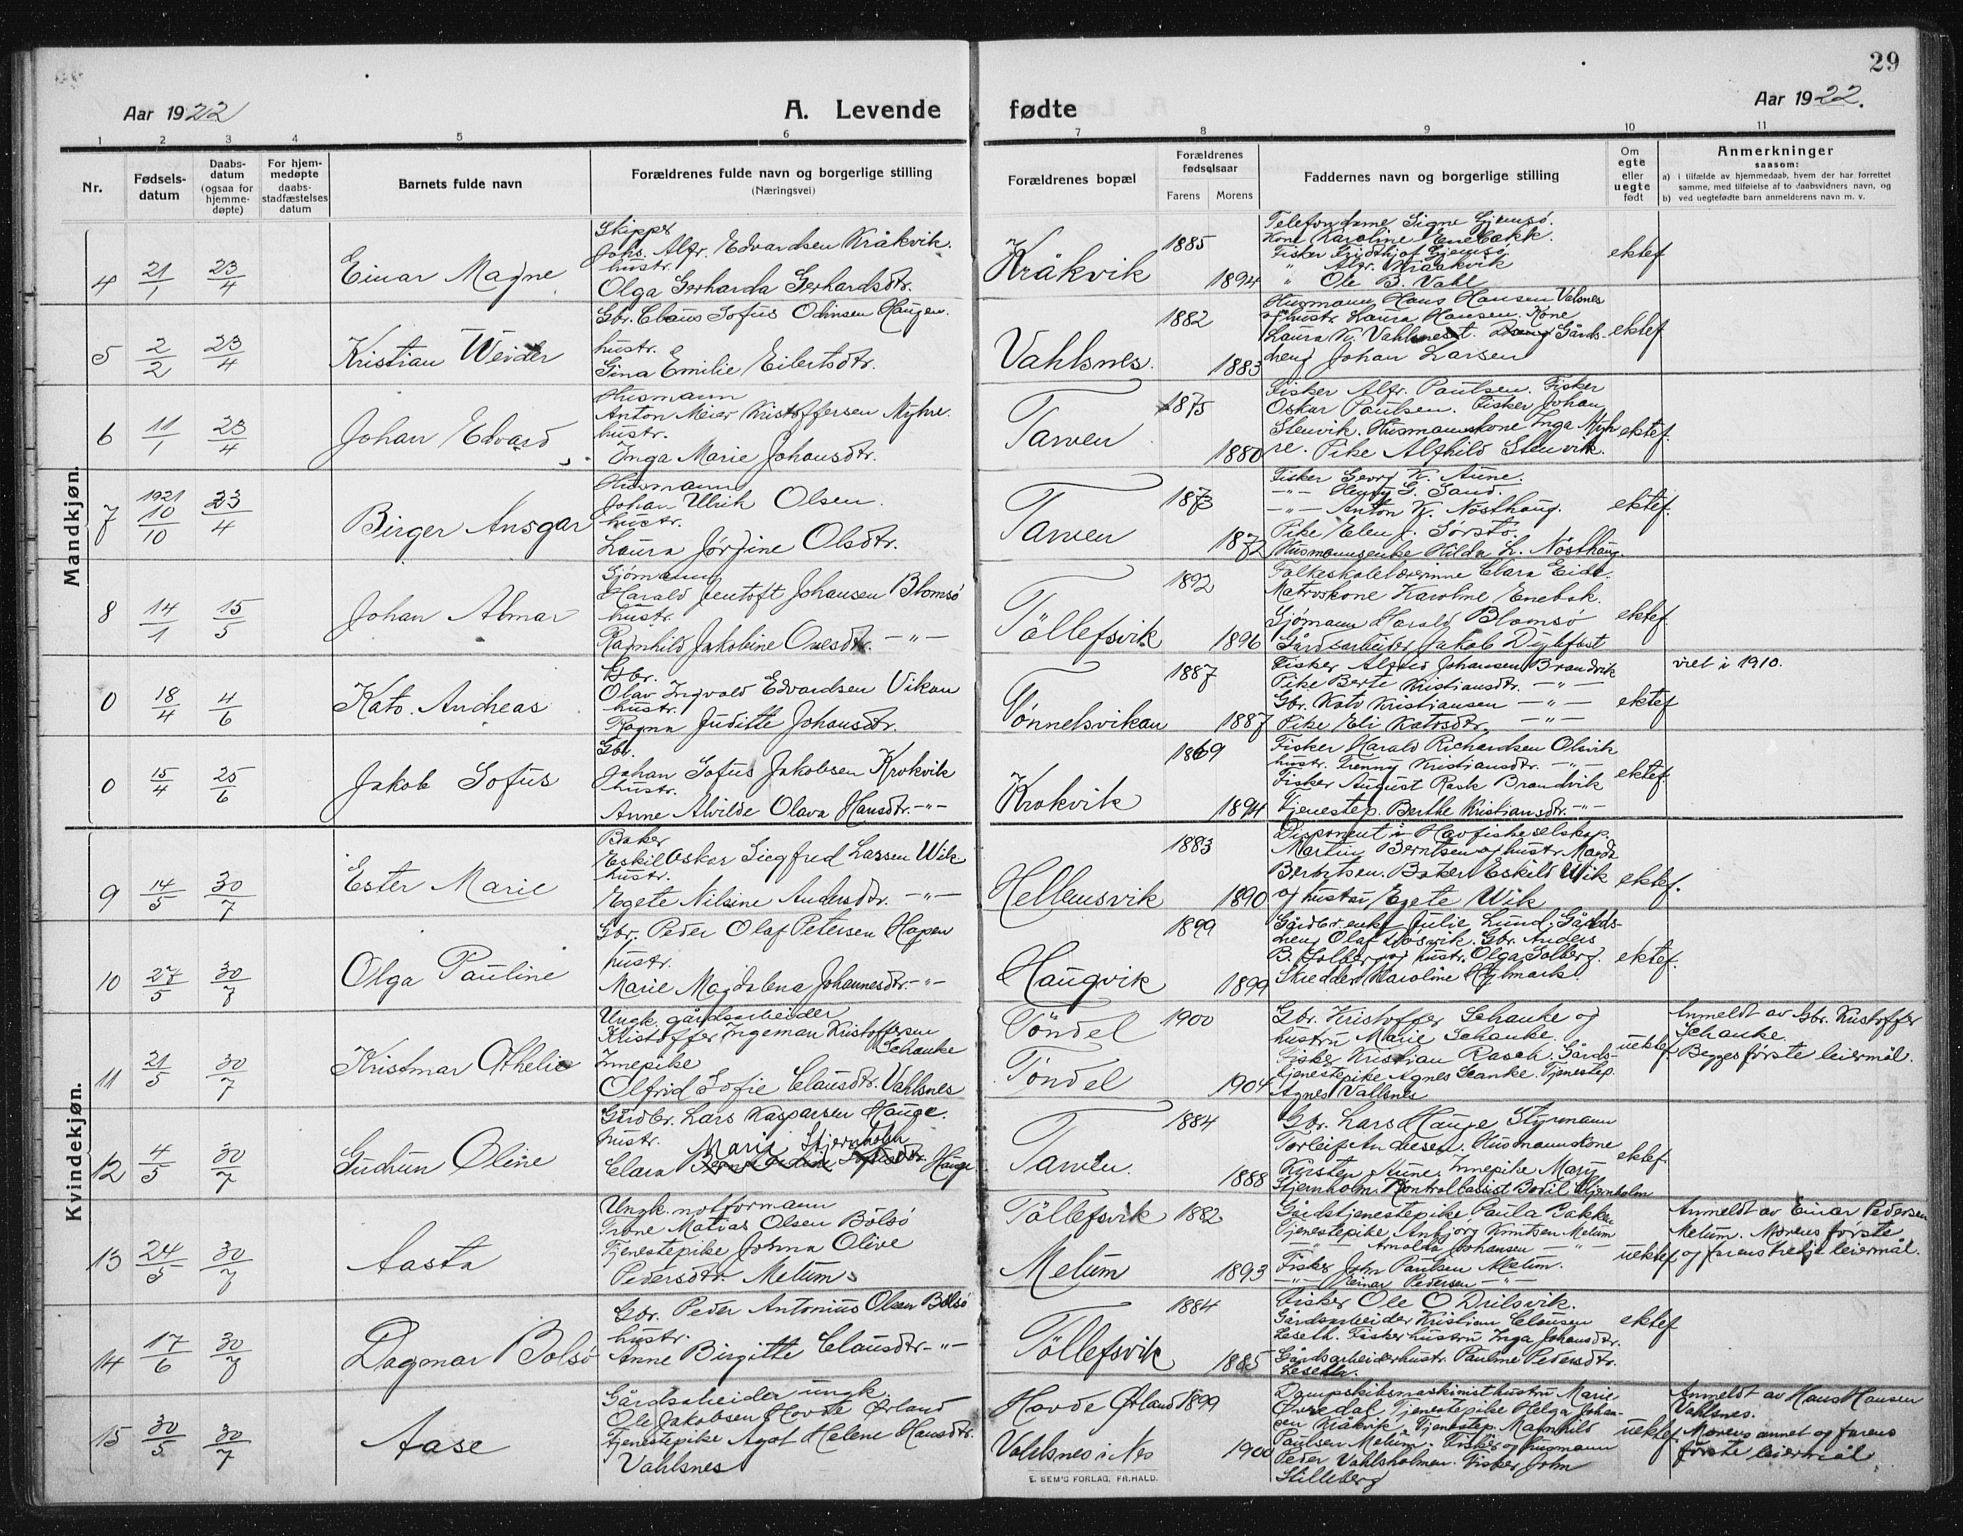 29
Aar 1922
A. Levende fødte
Aar 1922.
1 2 3 4 5 6 7 8 9 10 11
Nr.
Fødsels-
datum
Daabs-
datum
(ogsaa for
hjemme-
døpte)
For hjem-
medøpte
daabs-
stadfæstelses
datum
Barnets fulde navn
Forældrenes fulde navn og borgerlige stilling
(Næringsvei)
Forældrenes bopæl
Forældrenes
fødselsaar
Farens Morens
Faddernes navn og borgerlige stilling
Om
egte
eller
uegte
født
Anmerkninger
saasom:
a) i tilfælde av hjemmedaab, hvem der har forrettet
samme, med tilføielse af to daabsvidners navn, og
b) ved uegtefødte barn anmelderens navn m. v.
Mandkjøn.
4 21/1 23/4 Einar Magne
Skipper
Johs. Alfr. Edvardsen Kråkvik.
hustr.
Olga Gerharda Gerhardsdtr.
Kråkvik 1885 1894
Telefondame Signe Gjemsø.
Kone Karoline Enebakk.
Fisker Fridthjof Gjemsø
" Alfr. Kråkvik
" Ole B. Vahl
ektef
5 2/2 23/4 Kristian Weider
Gbr. Claus Sofus Odinsen Haugen.
hustr.
Gina Emilie Eilertsdtr.
Vahlsnes. 1882 1883
Husmann Hans Hansen Valsnes
og hustr. Laura Hansen. Kone
Laura K. Vahlsneset. Gårds-
dreng Johan Larsen
ektef
6 11/1 23/4 Johan Edvard
Husmann
Anton Meier Kristoffersen Myhre.
hustr.
Inga Marie Johansdtr.
Tarven 1875 1880
Fisker Alfr. Paulsen. Fisker
Oskar Paulsen. Fisker Johan
Stenvik. Husmannskone Inga Myh
re. Pike Alfhild Stenvik.
ektef.
7 1921 10/10 23/4 Birger Ansgar
Husmann
Johan Ulrik Olsen.
hustr.
Laura Jørgine Olsdtr.
Tarven 1873 1872
Fisker Georg K. Aune.
-"- Henry G. Sand.
-"- Anton K. Nøsthaug.
Pike Elen J. Sørstø.
Husmannsenke Hilda L. Nøsthaug.
ektef.
8 14/1 15/5 Johan Almar
Sjømann
Harald Jentoft Johansen Blomsø
hustr.
Ragnhild Jakobine Ovesdtr. -"-
Töllefsvik 1892 1896
Folkeskolelærerinne Clara Eide.
Matroskone Karoline Enebak.
Sjømann Harald Blomsø
Gårdsarbeider Jakob Dybfest
ektef
0 18/4 4/6 Kato Andreas
Gbr.
Olav Ingvald Edvardsen Vikan
hustr.
Ragna Juditte Johansdtr.
Tønnelsvikan 1887 1887
Fisker Alfred Johansen Brandvik
Pike Berte Kristiansdtr. -"-
Gbr. Kato Kristiansen -"-
Pike Eli Katosdtr. -"-
ektef
viet i 1910.
0 15/4 25/6 Jakob Sofus
Gbr.
Johan Sofus Jakobsen Krokvik
hustr.
Anne Alvilde Olava Hansdtr. -"-
Krokvik 1869 1894
Fisker Harald Richardsen Olsvik
hustr. Jenny Kristiansdtr. -"-
Fisker August Rask Brandvik
Tjenestep. Berthe Kristiansdtr. -"-
ektef.
Kvindekjøn.
9 14/5 30/7 Ester Marie
Baker
Eskil Oskar Siegfred Larsen Wik
hustr.
Egete Nilsine Andersdtr. -"-
Hellemsvik 1883 1890
Disponent i Havfiskeselskap.
Martin Berntsen og hustr. Magda
Berntsen. Baker Eskild Wik
og hustru Egete Wik
ektef.
10 27/5 30/7 Olga Pauline
Gbr. Peder Olaf Petersen Hagen
hustr.
Marie Magdalena Johannesdtr. -"-
Haugvik 1899 1899
Gårdbr.enke Julie Lund. Gårds-
dreng Olaf Råsvik. Gbr. Anders
B. Solberg og hustr. Olga Solberg.
Karoline Hylmark.
ektef.
11 21/5 30/7 Kristmar Othelie
Ungk. gårdsarbeider
Kristoffer Ingeman Kristoffersen
Schanke
Innepike
Olfrid Sofie Clausdtr. Vahlsnes
Töndel
Töndel 1900 1904
Gbr. Kristoffer Schanke og
hustru Marie Schanke.
Fisker Kristian Rasch. Gårds-
tjenestepike Agnes Scanke. Tjenestep.
Agnes Vallsnes
uektef
Anmeldt av Gbr. Kristoffer
Schanke.
Begges første leiermål.
12 4/5 30/7 Gudrun Oline
Gårdbr. Lars Kasparsen Hauge.
hustr. Marie Stjernholm
Clara Hauge
Tarven. 1884 1888
Gbr. Lars Hauge. Styrmann
Torleif Andresen. Husmannskone
Kirsten Aune. Innepike Mary
Stjernholm. Kontrollassist Bodil Stjernholm
ektef.
13 24/5 30/7 Aasta
Ungk. notformann
Trone Matias Olsen Bölsö
Tjenestepike Johna Olive
Pedersdtr. Melum.
Töllefsvik 1882
Melum 1893
Gårdstjenestepike Paula Bakken
Tjenestepike Anbjørg Knutsen Melum
-"- Arnolda Johansen -"-
Fisker John Paulsen Melum.
-"- Einar Pedersen -"-
uektef
Anmeldt av Einar Pedersen
Melum. Morens første
og farens tredje leiermål.
14 17/6 30/7 Dagmar Bolsø
Gbr. Peder Antonius Olsen Bölsö
hustr.
Anne Birgitte Clausdtr. -"-
Töllefsvik 1884 1885
Fisker Ole O Drilsvik.
Gårdsarbeider Kristian Clausen
Leseth. Fisker hustru Inga Johansdtr.
Gårdsarbeiderhustr. Pauline Pedersdtr.
Leseth.
ektef
15 30/5 30/7 Aase
Gårdsarbeider ungk.
Ole Jakobsen Hovde Ørland
Tjenestepike Agot Helene Hansdtr.
Vahlsnes
Hovde Ørland 1899
Vahlsnes i Nes 1900
Dampskibsmaskinisthustru Marie
Øvredal. Tjenestepike Helga Johan-
sen Kråkvik. Tjenestep. Magnhild
Paulsen Melum. Fisker og husmann
Peder Vahlsholmen. Fisker John
Stilleberg
uektef
Anmeldt av Hans Hansen
Vahlsnes.
Morens annet og farens
første leiermål
E. SEM'S FORLAG, FR.HALD.